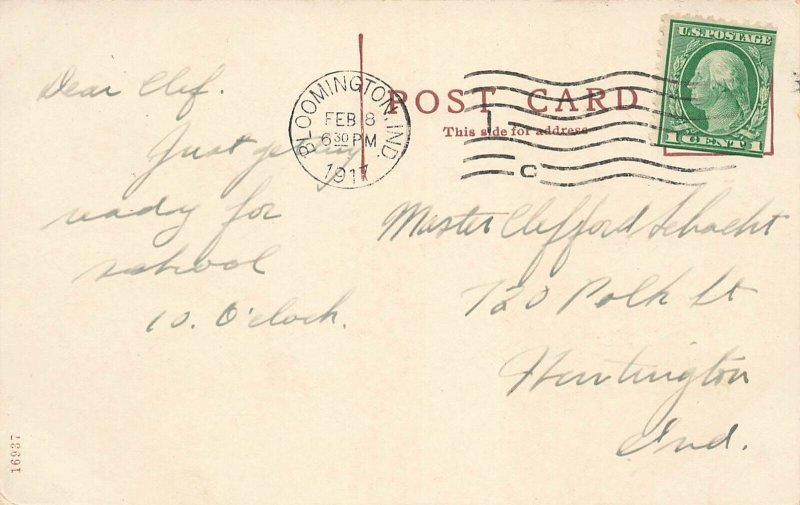 Dear Clif.
Just getting
ready for
school
10. O'clock.
16937
BLOOMINGTON, IND.
FEB 8
6 30 PM
1917
POST CARD
This side for address
1
C
U.S. POSTAGE
1 CENT 1
Master Clifford Schacht
720 Polk St
Huntington
Ind.